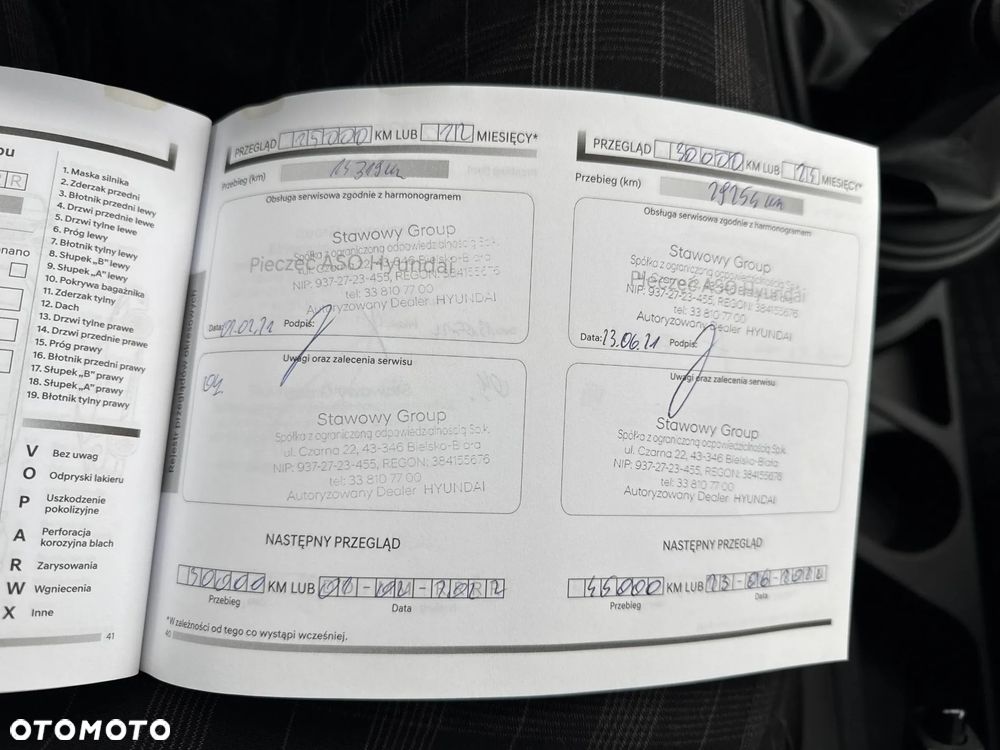 1. Maska silnika
2. Zderzak przedni
3. Błotnik przedni lewy
4. Drzwi przednie lewe
5. Drzwi tylne lewe
6. Próg lewy
7. Błotnik tylny lewy
8. Słupek „B" lewy
9. Słupek „A" lewy
10. Pokrywa bagażnika
11. Zderzak tylny
12. Dach
13. Drzwi tylne prawe
14. Drzwi przednie prawe
15. Próg prawy
16. Błotnik przedni prawy
17. Słupek „B" prawy
18. Słupek „A" prawy
19. Błotnik tylny prawy
V Bez uwag
O Odpryski lakieru
P Uszkodzenie pokolizyjne
A Perforacja korozyjna blach
R Zarysowania
W Wgniecenia
X Inne
41
Rejestr przeglądów okresowych
PRZEGLĄD 15000 KM LUB 12 MIESIĘCY*
Przebieg (km) 14319 km
Obsługa serwisowa zgodnie z harmonogramem
Pieczęć ASO Hyundai
Stawowy Group
Spółka z ograniczoną odpowiedzialnością Sp.k.
ul. Czarna 22, 43-346 Bielsko-Biała
NIP: 937-27-23-455, REGON: 384155676
tel: 33 810 77 00
Autoryzowany Dealer HYUNDAI
Data: 01.02.21 Podpis:
Uwagi oraz zalecenia serwisu
Stawowy Group
Spółka z ograniczoną odpowiedzialnością Sp.k.
ul. Czarna 22, 43-346 Bielsko-Biała
NIP: 937-27-23-455, REGON: 384155676
tel: 33 810 77 00
Autoryzowany Dealer HYUNDAI
NASTĘPNY PRZEGLĄD
30000 KM LUB
Przebieg Data
*W zależności od tego co wystąpi wcześniej.
40
PRZEGLĄD 30000 KM LUB MIESIĘCY*
Przebieg (km) 29254 km
Obsługa serwisowa zgodnie z harmonogramem
Pieczęć ASO Hyundai
Stawowy Group
Spółka z ograniczoną odpowiedzialnością Sp.k.
NIP: 937-27-23-455, REGON: 384155676
tel: 33 810 77 00
Autoryzowany Dealer HYUNDAI
Data: 23.06.21 Podpis:
Uwagi oraz zalecenia serwisu
Stawowy Group
Spółka z ograniczoną odpowiedzialnością Sp.k.
ul. Czarna 22, 43-346 Bielsko-Biała
NIP: 937-27-23-455, REGON: 384155676
tel: 33 810 77 00
Autoryzowany Dealer HYUNDAI
NASTĘPNY PRZEGLĄD
45000 KM LUB
Przebieg Data
OTOMOTO